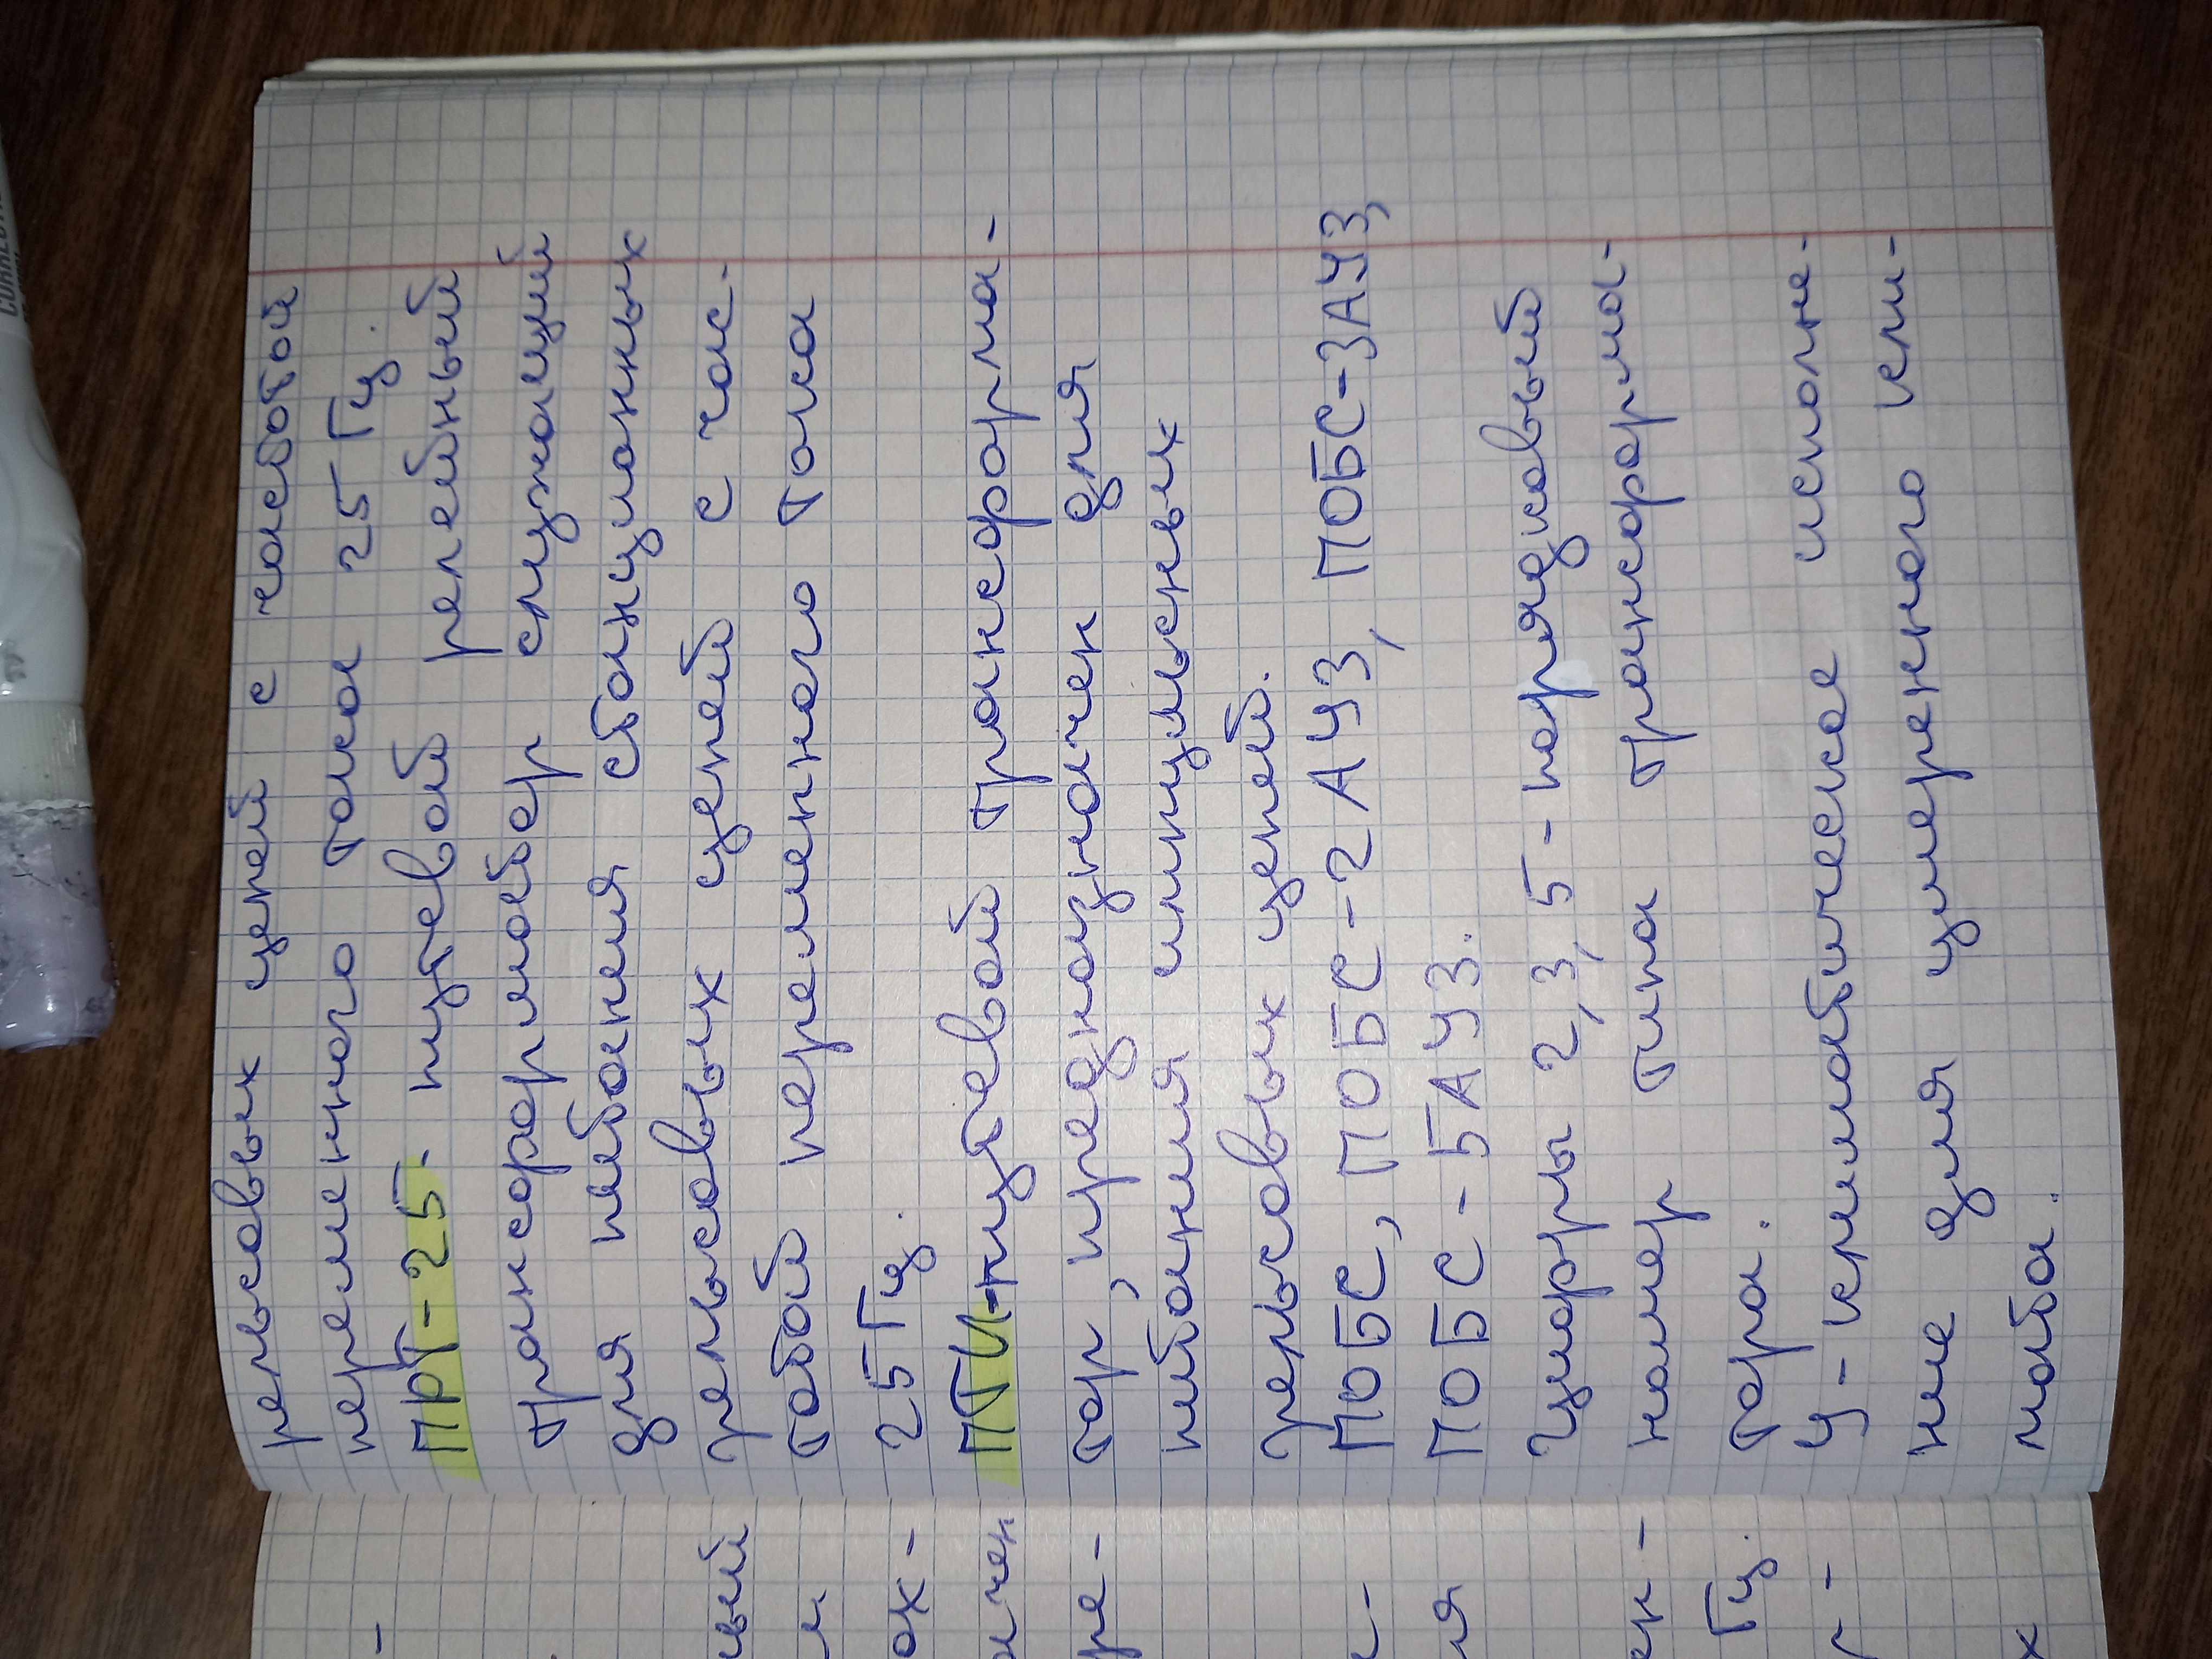 рельсовых цепей с частотой
переменного тока 25 Гц.
ПРТ-25- путевой релейный
трансформатор служащий
для питания станционных
рельсовых цепей с час-
тотой переменного тока
25 Гц.
ПТИ-путевой трансформа-
тор, предназначен для
питания импульсных
рельсовых цепей.
ПОБС, ПОБС-2АУ3, ПОБС-3АУ3,
ПОБС-5АУ3.
Цифры 2,3,5-порядковый
номер типа трансформа-
тора.
У-климатическое исполне-
ние для умеренного кли-
мата.
-
вый
и
ок-
ачен
ре-
с-
ия
ек-
Гц.
р-
х